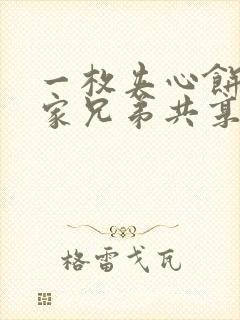 一枚夹心餅
家兄弟共
格雷戈瓦